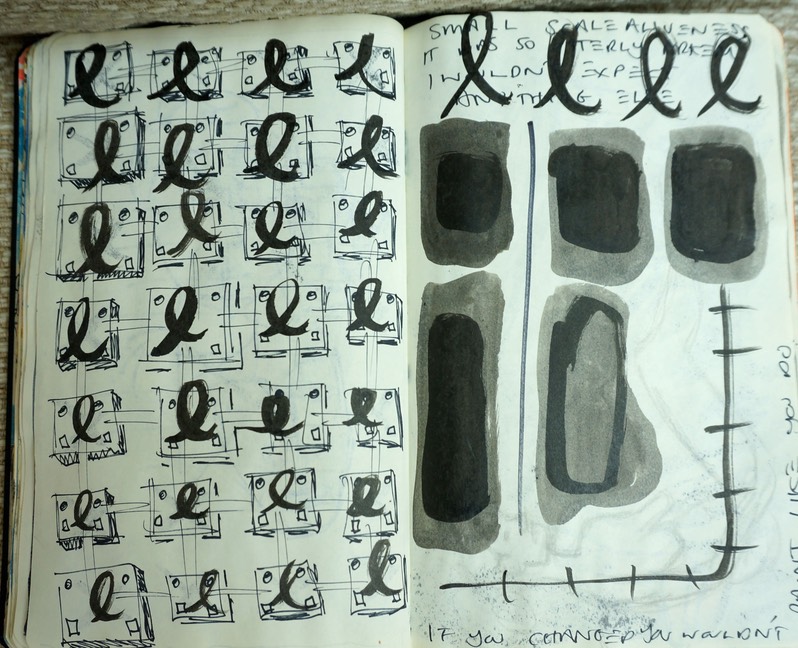 SMALL SCALE ALIVENESS
IT WAS SO UTTERLY
I WOULDN'T EXPE
ANYTHING ELSE
IF YOU CHANGED YOU WOULDN'T
PAINT LIKE YOU DO